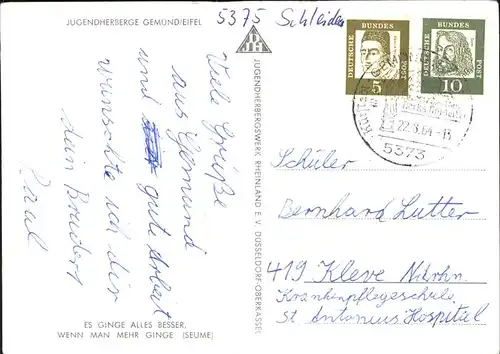 JUGENDHERBERGE GEMÜND/EIFEL
5375 Schleiden
Viele Grüße
aus Gemünd
und gute Arbeit
wünschte ich dir
dein Bruder
Paul
ES GINGE ALLES BESSER,
WENN MAN MEHR GINGE (SEUME)
DJH
JUGENDHERBERGSWERK RHEINLAND E.V. DÜSSELDORF-OBERKASSEL
DEUTSCHE BUNDES POST
5
DEUTSCHE BUNDES POST
10
22.6.64-18
5373
Schüler
Bernhard Lutter
419 Kleve Ndrhn.
Krankenpflegeschule
St Antonius Hospital